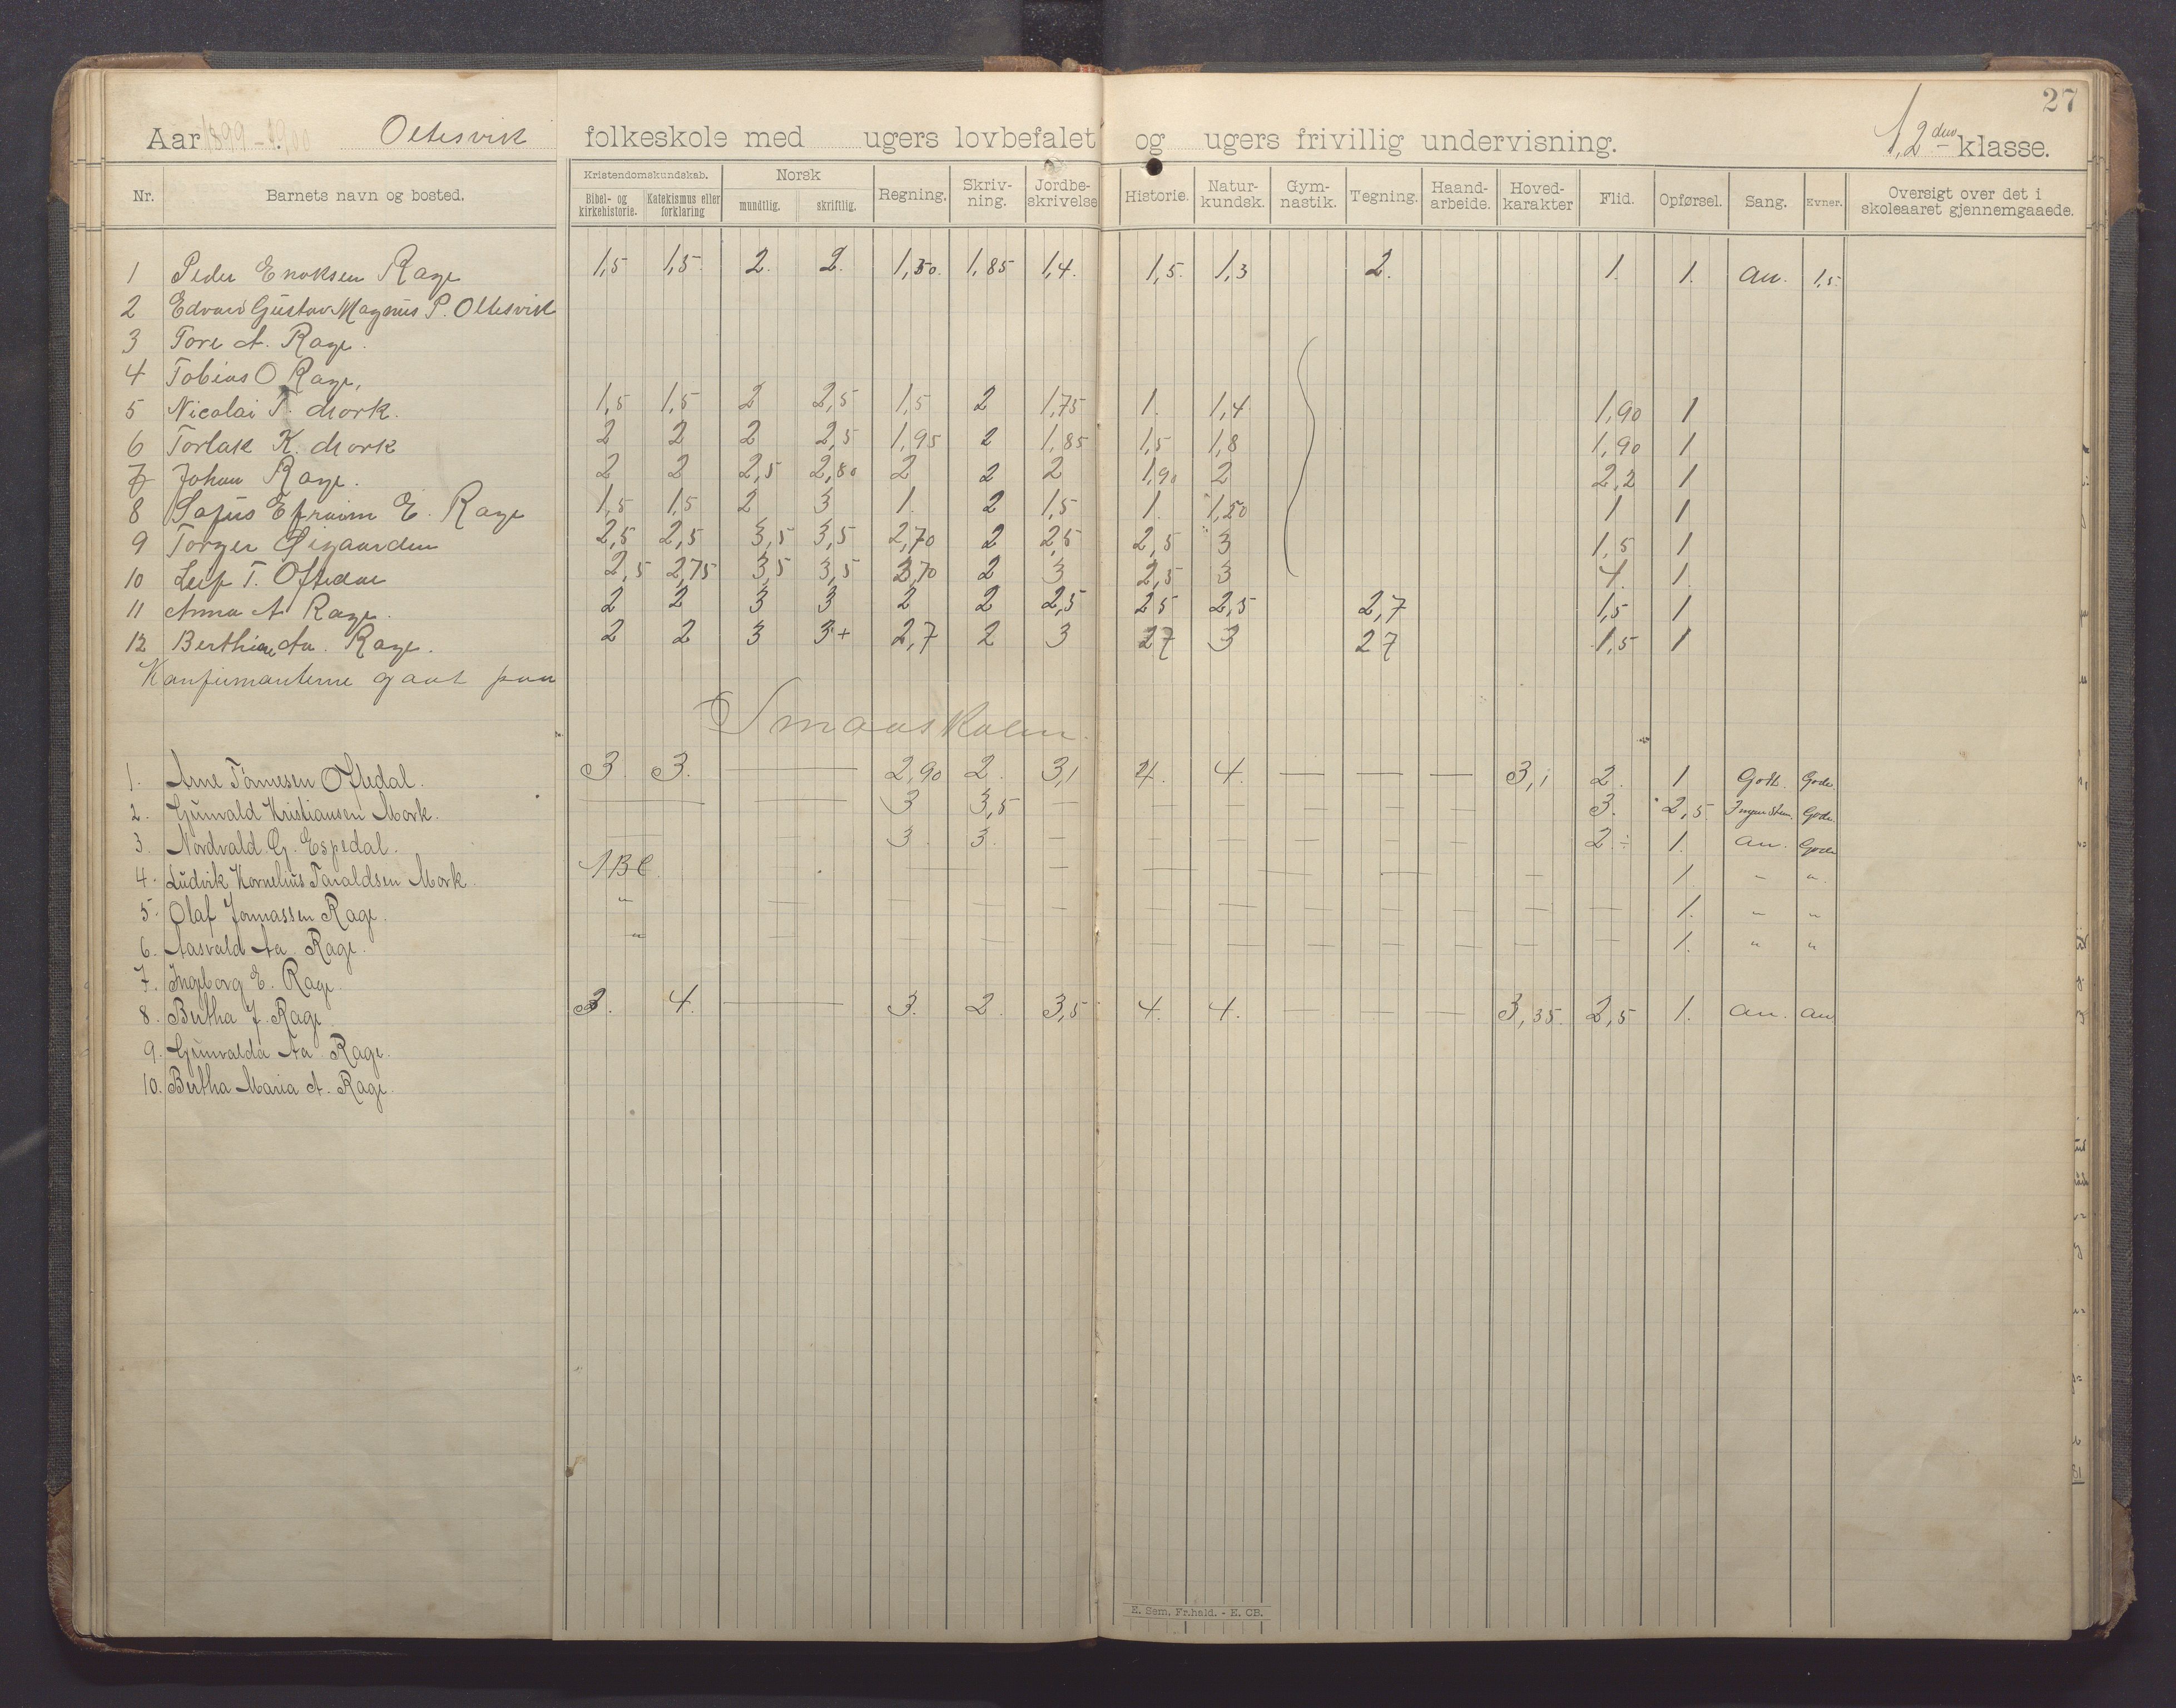 27
Aar 1899-1900 Oltesvik folkeskole med ugers lovbefalet og ugers frivillig undervisning. 1,2den klasse.
Nr. Barnets navn og bosted. Kristendomskundskab. Bibel- og kirkehistorie. Katekismus eller forklaring Norsk mundtlig. skriftlig. Regning. Skriv-ning. Jordbe-skrivelse Historie. Natur-kundsk. Gym-nastik. Tegning. Haand-arbeide. Hoved-karakter Flid. Opførsel. Sang. Evner. Oversigt over det i skoleaaret gjennemgaaede.
1 Peder Enoksen Rage 1,5 1,5 2. 2. 1,50. 1,85 1,4. 1,5. 1,3 2. 1. 1. an. 1,5.
2 Edvard Gustav Magnus P. Oltesvik
3 Tore A. Rage.
4 Tobias O Rage,
5 Nicolai T. Mork. 1,5 1,5 2 2,5 1,5 2 1,75 1. 1,4 1,90 1
6 Torlak K. Mork 2 2 2 2,5 1,95 2 1,85 1,5 1,8 1,90 1
7 Johan Rage. 2 2 2,5 2,80 2 2 2 1,90 2 2,2 1
8 Sofus Efraim E. Rage 1,5 1,5 2 3 1. 2 1,5 1. 1,50 1 1
9 Torger Øigaarden 2,5 2,5 3,5 3,5 2,70 2 2,5 2,5 3 1,5 1
10 Leif T. Oftedal 2,5 2,75 3,5 3,5 3,70 2 3 2,5 3 4. 1.
11 Anna A Rage. 2 2 3 3 2 2 2,5 25 2,5 2,7 1,5 1
12 Berthine Aa. Rage. 2 2 3 3+ 2,7 2 3 27 3 27 1,5 1
Konfirmanterne gaat paa
Smaaskolen.
1. Arne Tønnesen Oftedal. 3. 3. — 2,90 2. 3,1 4. 4. — — — 3,1 2. 1. Godt. Gode.
2. Gunvald Kristiansen Mork. — — 3 3,5 — — — — — — — 3. 2,5 Ingen Stem. Gode.
3. Nordvald G. Espedal. — — 3. 3. — — — — — — — 2÷ 1. an. Gode
4. Ludvik Kornelius Taraldsen Mork. ABC — — — — — — — 1. " "
5. Olaf Jonnassen Rage. " — — — — — — — — — — — 1. " "
6. Aasvald Aa. Rage. " — — — — — — — — — 1. " "
7. Ingeborg E. Rage.
8. Bertha J. Rage 3. 4. — 3. 2. 3,5 4. 4. — — — 3,35. 2,5 1. an. an
9. Gunvalda Aa Rage.
10. Bertha Maria A. Rage.
E. Sem, Fr.hald. - E. CB.